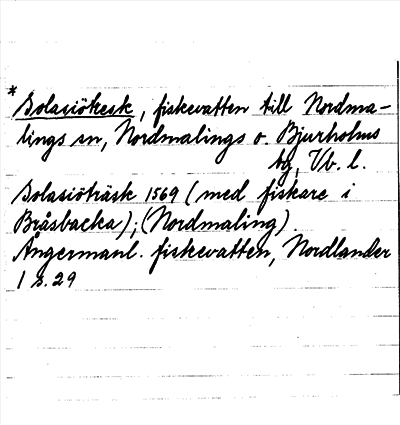 * Bolasiötresk, fiskevatten till Nordma-
lings sn, Nordmalings o. Bjurholms
tg, Vb. l.
Bolasiöträsk 1569 (med fiskare i
Bråsbacka); (Nordmaling).
Ångermanl. fiskevatten, Nordlander
1 s. 29